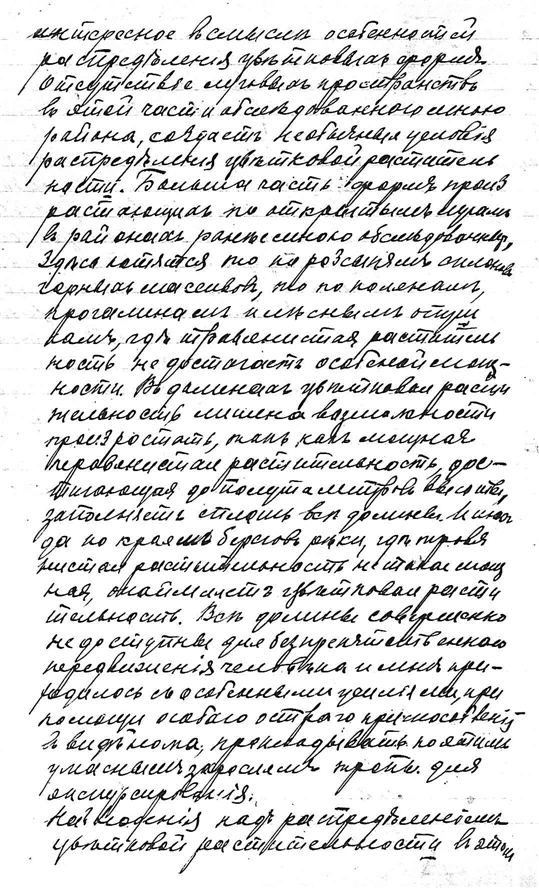 интересное въ смыслѣ особенностей
распредѣленія цвѣтковыхъ формъ.
Отсутствіе луговыхъ пространствъ
въ этой части обслѣдованного мною
района, создастъ необычныя условія
распредѣленія цвѣтковой раститель
ности. Большая часть формъ произ
растающихъ по открытымъ лугамъ
въ районахъ ранѣе мною обслѣдованныхъ,
здѣсь ютятся то по розсыпямъ склоновъ
горныхъ массивовъ, то по полянамъ,
прогалинамъ и лѣснымъ опуш
камъ, гдѣ травянистая раститель
ность не достигаетъ особеной мощ-
ности. Въ долинахъ цвѣтковая расти
тельность лишена возможности
произростать, такъ какъ мощная
травянистая растительность, дос-
тигающая до полутаметровъ высоты,
заполняетъ сплошь всѣ долины. Иног
да по краямъ береговъ рѣки, гдѣ травя
нистая растительность не такая мощ
ная, цвѣтковая расти
тельность. Всѣ долины совершенно
недоступны для безпрепятственного
передвиженія человѣка и мнѣ при-
ходилось съ особенными усиліями, при
помощи особаго острого приспособленія
въ видѣ ножа, прокладывать по этимъ
ужаснымъ зарослямъ тропы для
экскурсированія.
Наблюденія надъ распредѣленіемъ
цвѣтковой растительности въ этой